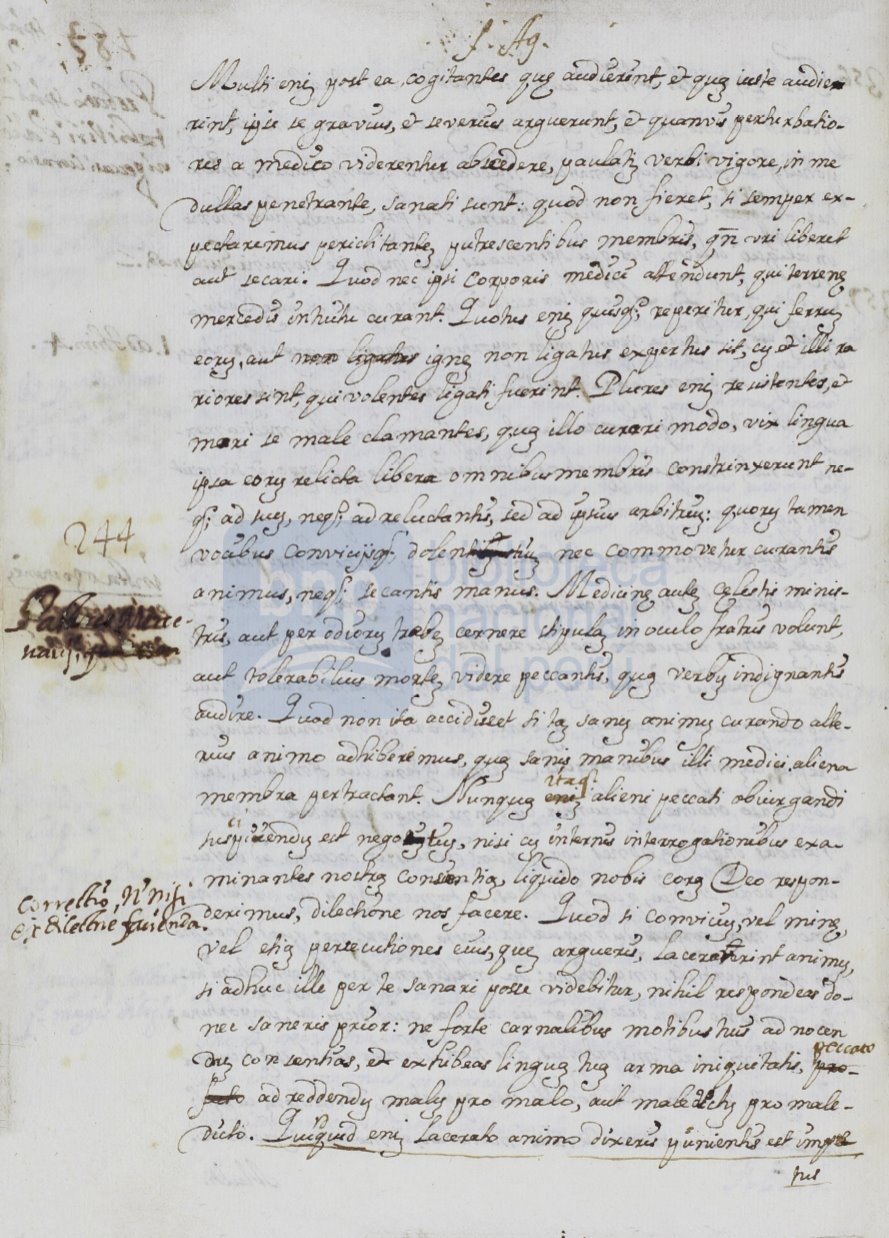 S. Ag.
Multi enī post ea, cogitantes quę audierint, et quā iuste audie-
rint, ipsi se gravius, et severius arguerunt, et quanvis perturbatio-
res a medico viderentur abscedere, paulatī verbi vigore, in me
dullas penetrante, sanati sunt: quod non fieret, si semper ex-
pectaremus periclitantē putrescentibus membris, qn̄ uri liberet
aut secari. Quod nec ipsi corporis medici attendunt, qui terrenę
mercedis intuitu curant. Quotus enī quisq; reperitur, qui ferrū
eorū, aut non ligatus ignē non ligatus expertus sit, cū et illi ra
riores sint, qui volentes ligati fuerint. Plures enī resistentes, et
mori se malle clamantes, quā illo curari modo, vix lingua
ipsa eorū relicta libera omnibus membris constrinxerunt ne-
q; ad suū, neq; ad reluctantis, sed ad ipsius arbitriū: quorū tamen
vocibus convicijsq; dolentiū nec commovetur curantis
animus, neq; secantis manus. Medicinę autē cęlestis minis-
tri, aut per odiorū trabē cernere stipulā in oculo fratris volunt,
aut tolerabilius mortē videre peccantis, quā verbū indignantis
audire. Quod non ita accidisset si tā sanū animū curando alte-
rius animo adhiberemus, quā sanis manibus illi medici aliena
membra pertractant. Nunquā enī itaq; alieni peccati obiurgandi
suscipiendū est negotiū, nisi cū internis interrogationibus exa-
minantes nostrā consentiā, liquido nobis corā Deo respon-
derimus, dilectione nos facere. Quod si conviciū, vel minę,
vel etiā persecutiones eius, quē argueris, laceraverint animū,
si adhuc ille per te sanari posse videbitur, nihil respondeas do-
nec saneris prior: ne forte carnalibus motibus tuis ad nocen
dū consentias, et exhibeas linguā tuā arma iniquitatis, pro- peccato
fecto ad reddendū malū pro malo, aut maledictū pro male-
dicto. Quicquid enī lacerato animo dixeris punientis est impe
tus
244
correctio, n̄ nisi
ex dilectiōe facienda.
biblioteca
nacional
del perú
bnp